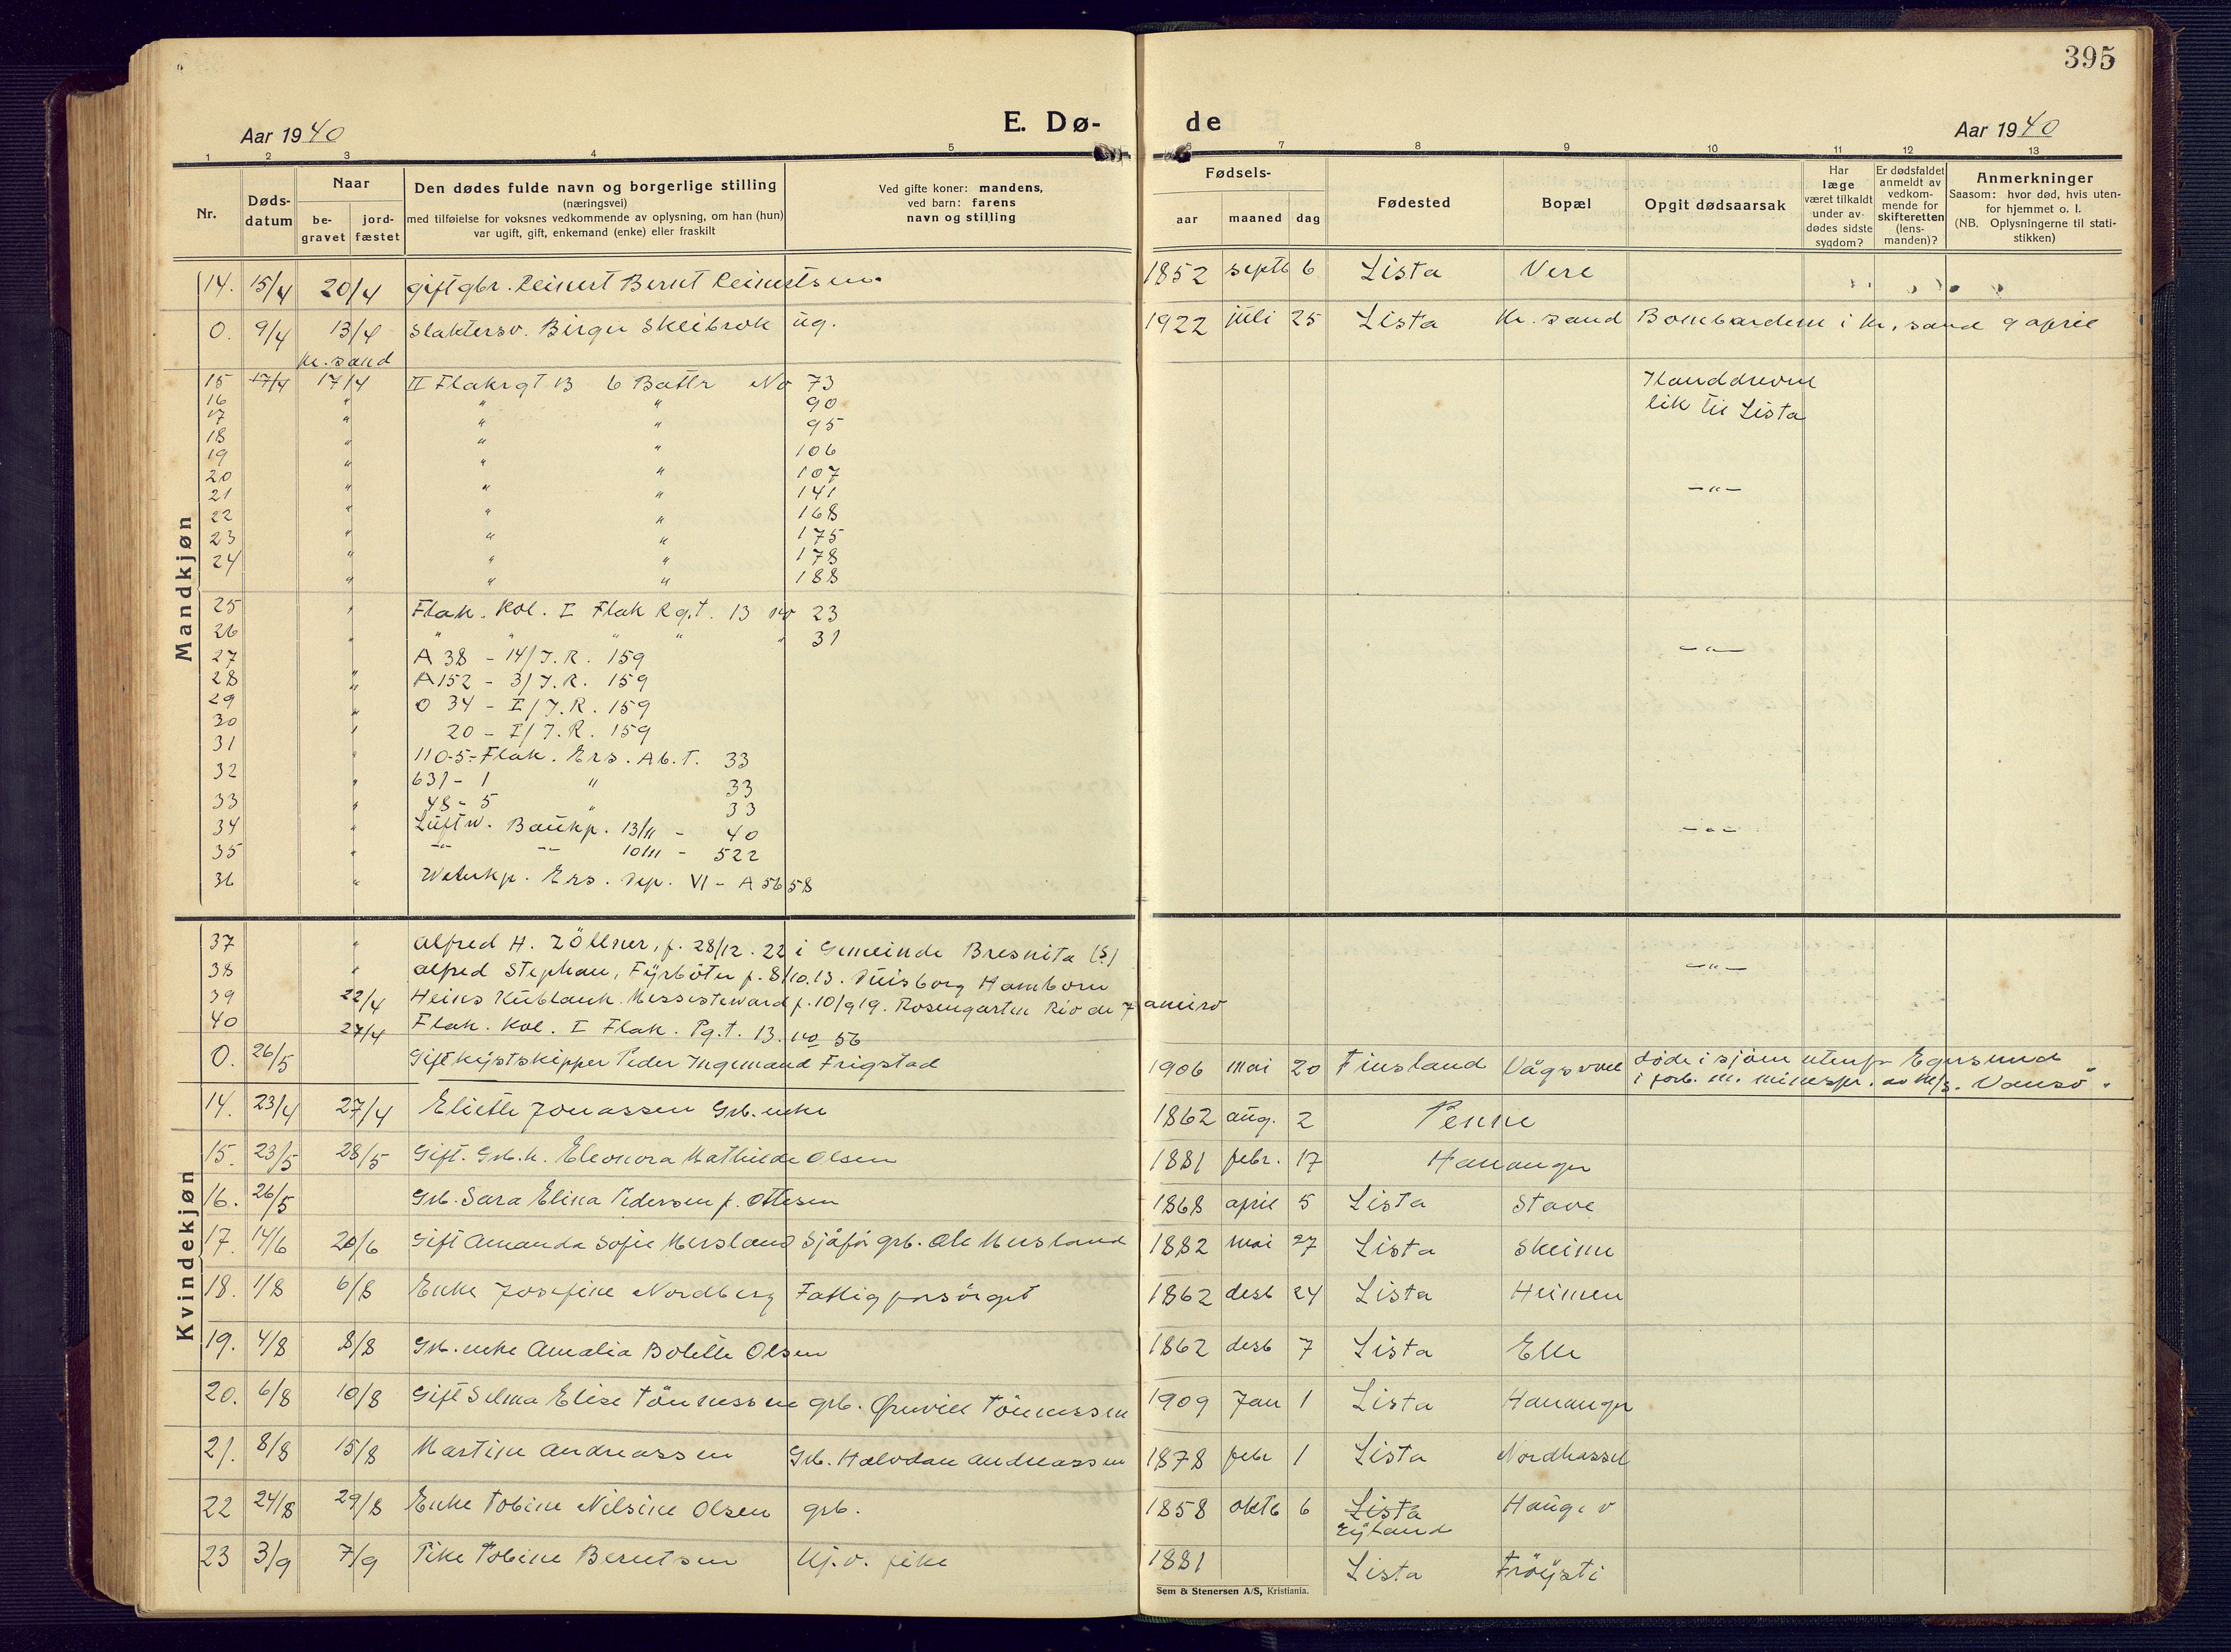 395
E. Dø-
de
Aar 1940
Aar 1940
1 2 3 4 5 6 7 8 9 10 11 12 13
Nr.
Døds-
datum
Naar
be-
gravet
jord-
fæstet
Den dødes fulde navn og borgerlige stilling
(næringsvei)
med tilføielse for voksnes vedkommende av oplysning, om han (hun)
var ugift, gift, enkemand (enke) eller fraskilt
Ved gifte koner: mandens,
ved barn: farens
navn og stilling
Fødsels-
aar maaned dag
Fødested
Bopæl
Opgit dødsaarsak
Har
læge
været tilkaldt
under av-
dødes sidste
sygdom?
Er dødsfaldet
anmeldt av
vedkom-
mende for
skifteretten
(lens-
manden)?
Anmerkninger
Saasom: hvor død, hvis uten-
for hjemmet o. l.
(NB. Oplysningerne til stati-
stikken)
Mandkjøn
14. 15/4 20/4 gift gbr. Reinert Bernt Reinertsen. 1852 septb 6 Lista Vere
0. 9/4 13/4 Slaktersv. Birger Skeibrok ug. 1922 juli 25 Lista Kr. sand Bombardem i Kr. sand 9 april
Kr. sand
15 17/4 17/4 II Flakrgt 13 6 Battr No 73 Ilanddrevne
16 " " " 90 lik til Lista
17 " " " 95
18 " " " 106
19 " " " 107
20 " " " 141 -"-
21 " " " 168
22 " " " 175
23 " " " 178
24 " " " 188
25 " Flak. Kol. I Flak Rg.t. 13 no 23
26 " " " " " " 31
27 A 38 - 14/J.R. 159 -"-
28 " A 152 - 3/J.R. 159
29 " O 34 - I/J.R. 159
30 " 20 - I/J.R. 159
31 " 110-5-Flak. Ers. Ab.T. 33
32 " 631 - 1 " 33
33 " 48 - 5 " 33
34 " Luftw. Baukp. 13/11 - 40 -"-
35 " -"- -"- 10/11 - 522
36 " Ers. Dep. VI - A 5658
37 " Alfred H. Zöllner, f. 28/12. 22 i Gemeinde Bresnita (S)
38 " Alfred Stephan, Fyrböter f. 8/10.13. Duisborg Hamborn -"-
39 22/4 Heins Kublank. Messesteward f. 10/9 19. Rosengarten Rio de Janeiro
40 27/4 Flak. Kol. I Flak. Rg.t. 13. no 56
0. 26/5 Gift kystskipper Peder Ingemand Frigstad 1906 mai 20 Finsland Vågsvoll døde i sjøen utenfor Egersund
i forb. m. minespr. av M/S. Vansö.
Kvindekjøn
14. 23/4 27/4 Eliette Jonassen Grb. enke 1862 aug. 2 Penne
15. 23/5 28/5 Gift. Grb.k. Eleonora Mathilde Olsen 1881 febr. 17 Hananger
16. 26/5 Grb. Sara Elina Pedersen f. Ottesen 1868 april 5 Lista Stave
17. 14/6 20/6 Gift Amanda Sofie Mersland Sjåfør grb. Ole Mersland 1882 mai 27 Lista Skeime
18. 1/8 6/8 Enke Josefine Nordberg Fattigforsörget 1862 desb 24 Lista Heimen
19. 4/8 8/8 Grb. enke Amalia Bolette Olsen 1862 desb 7 Lista Elle
20. 6/8 10/8 Gift Selma Elise Tönnessen grb. Tönnessen 1909 Jan 1 Lista Hananger
21. 8/8 15/8 Martine Andreassen Grb. Halvdan Andreassen 1878 febr 1 Lista Nordhassel
22 24/8 29/8 Enke Tobine Nilsine Olsen grb. 1858 oktb 6 Lista Hauge v
Eyland
23 3/9 7/9 Pike Tobine Berntsen Uj.v. pike 1881 Lista Tröysti
Sem & Stenersen A/S, Kristiania.